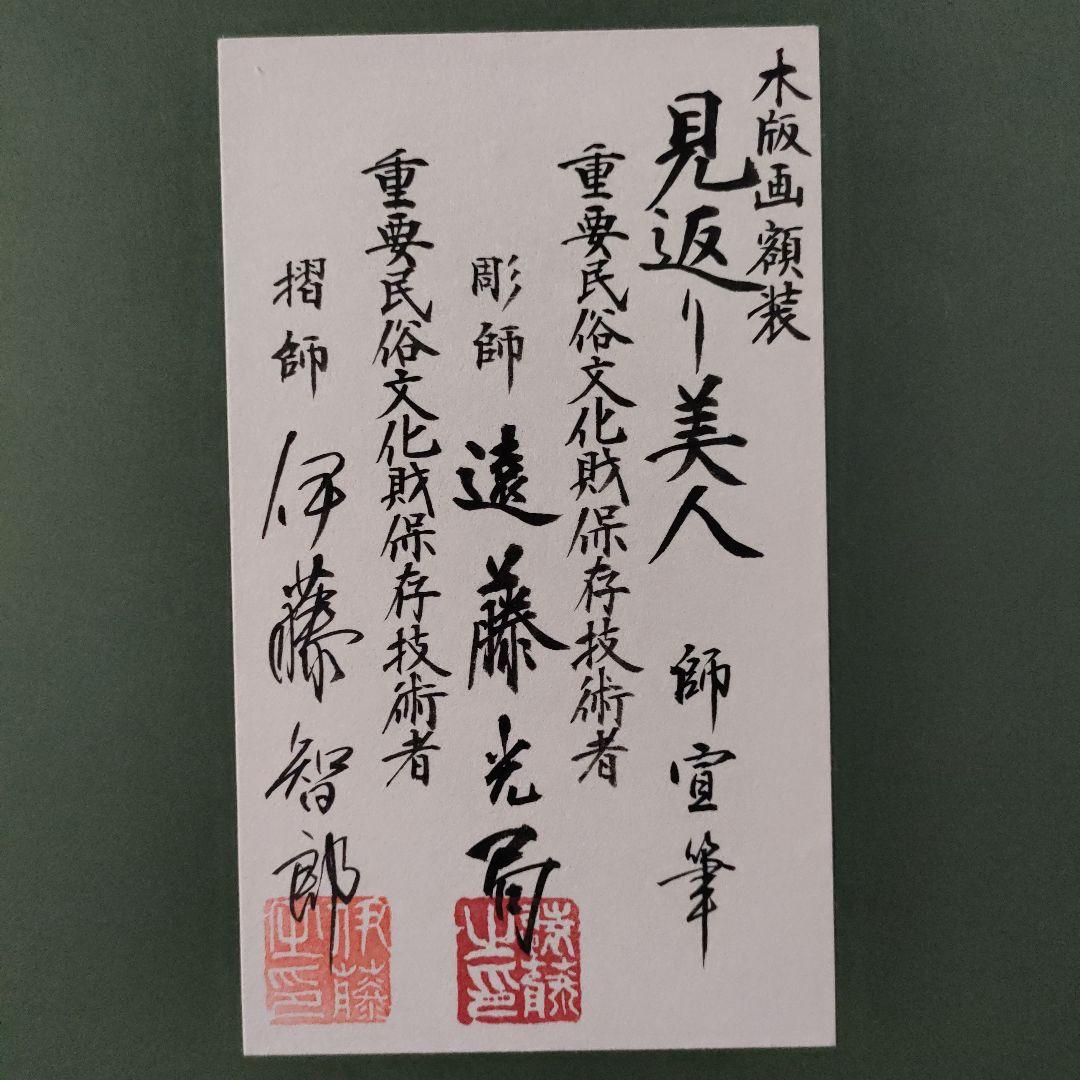 木版画額装
見返り美人 師宣筆
重要民俗文化財保存技術者
彫師 遠藤光局
重要民俗文化財保存技術者
摺師 伊藤智郎
之印
伊藤
之印